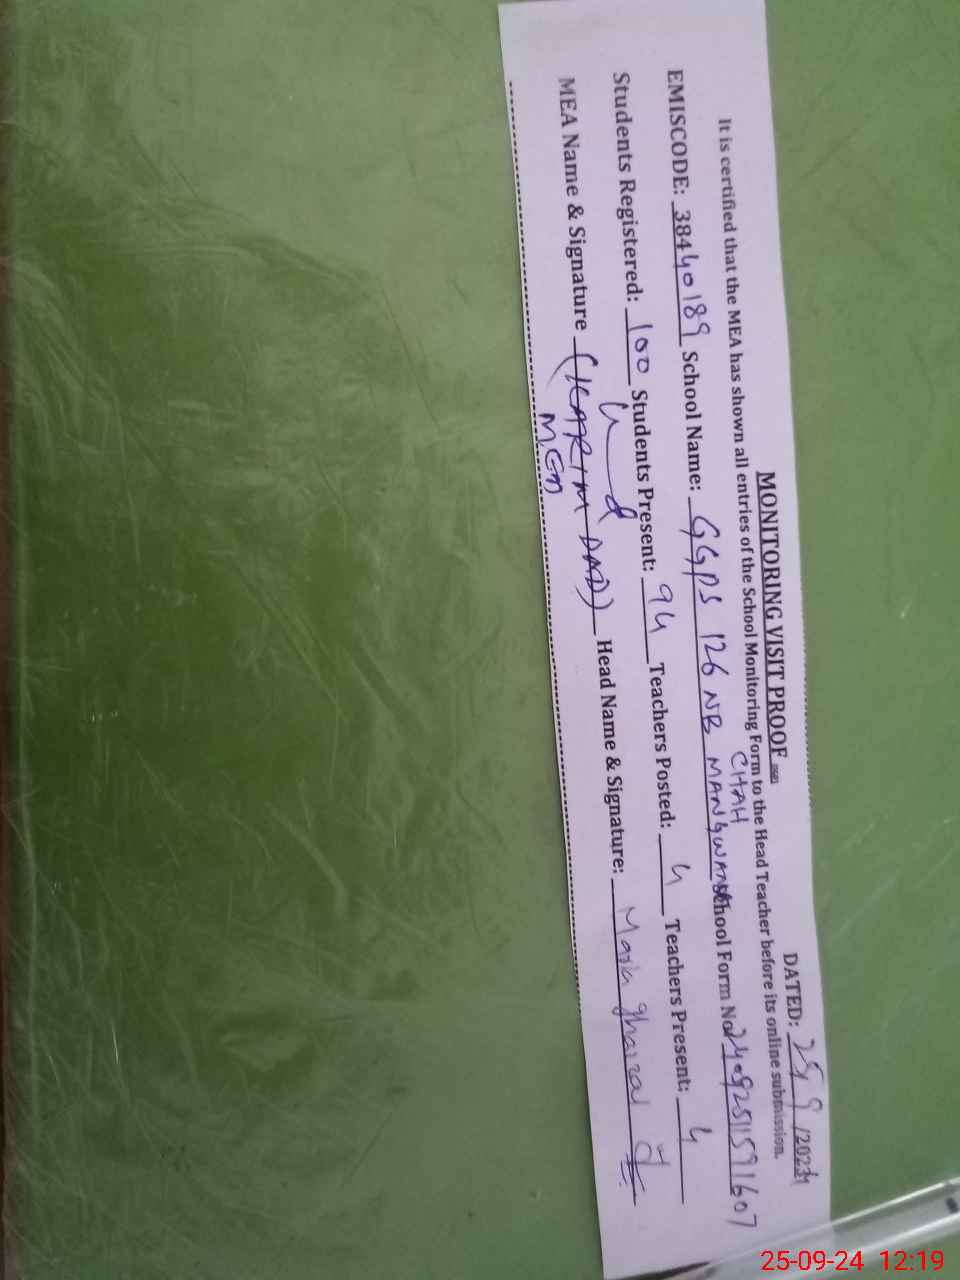 MONITORING VISIT PROOF
DATED: 25/9/2024
It is certified that the MEA has shown all entries of the School Monitoring Form to the Head Teacher before its online submission.
EMISCODE: 38440189 School Name: GGPS 126 NB MANGWANA CHAH School Form No 24092511591607
Students Registered: 100 Students Present: 94 Teachers Posted: 4 Teachers Present: 4
MEA Name & Signature (KARIM DAD) Head Name & Signature: Maria
25-09-24 12:19